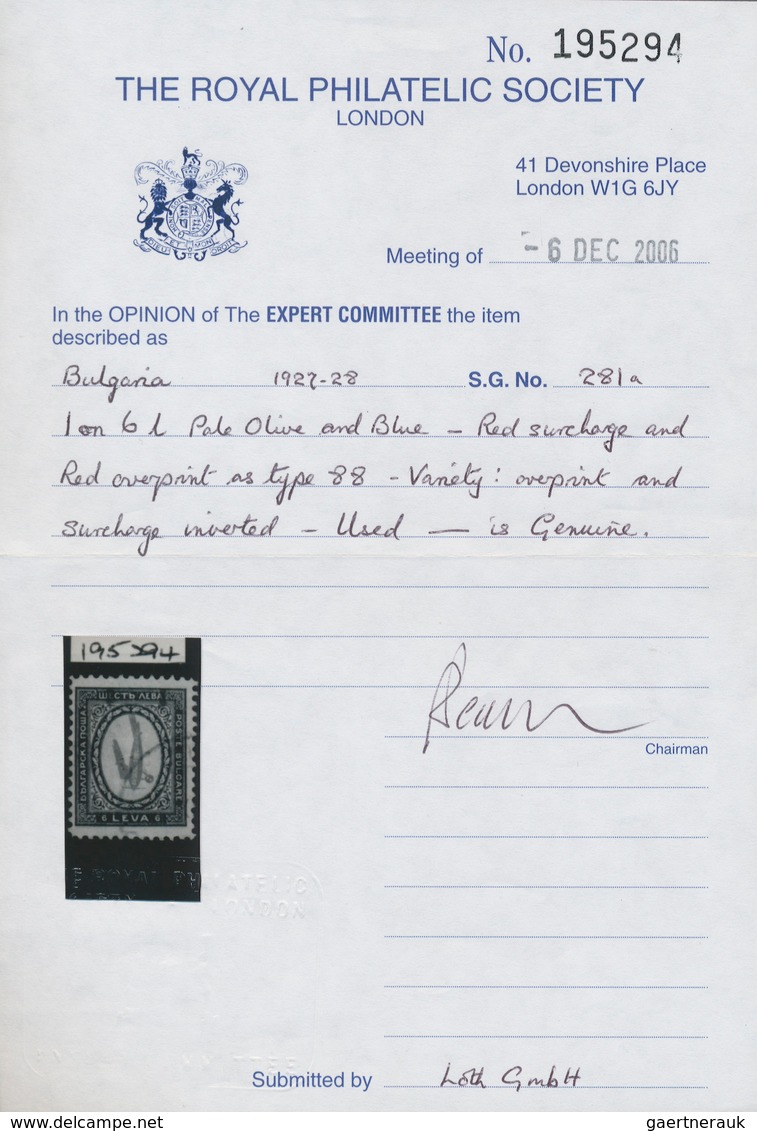 No. 195294
THE ROYAL PHILATELIC SOCIETY
LONDON
41 Devonshire Place
London W1G 6JY
Meeting of - 6 DEC 2006
In the OPINION of The EXPERT COMMITTEE the item
described as
Bulgaria 1927-28 S.G. No. 281a
1 on 6 l Pale Olive and Blue - Red surcharge and
Red overprint as type 88 - Variety: overprint and
surcharge inverted - Used - is Genuine.
195294
ШЕСТЬ ЛЕВА
БЪЛГАРСКА ПОЩА
POSTE BULGARE
6 LEVA 6
Chairman
ROYAL PHILATELIC
LONDON
Submitted by Löth GmbH
gaertnerauk